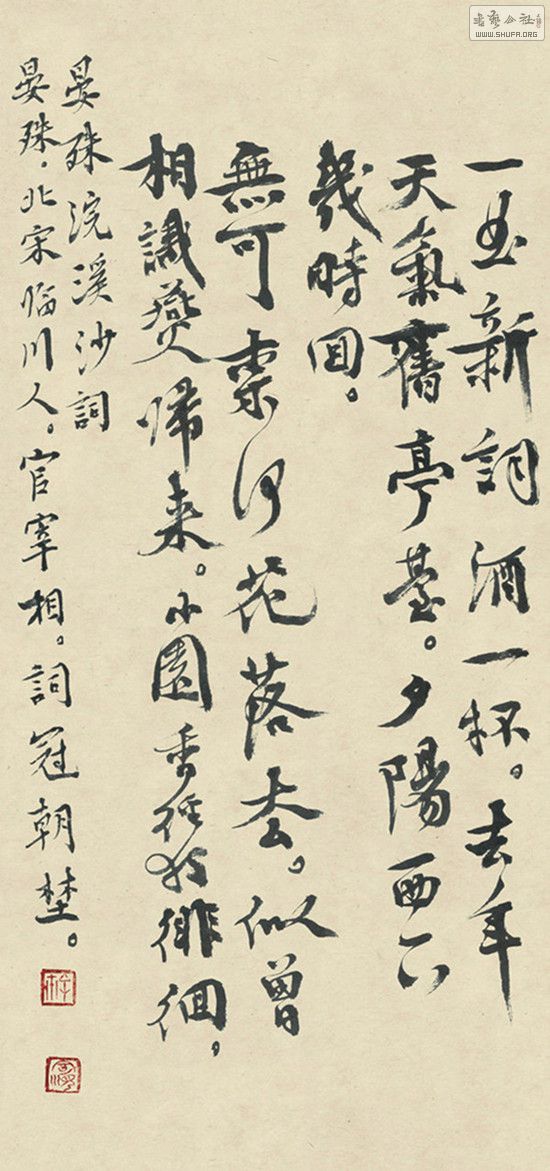 一曲新詞酒一杯。去年
天氣舊亭臺。夕陽西下
幾時囬。
無可柰何花落去。似曾
相識燕帰来。小園香徑獨徘徊。
晏殊浣溪沙詞
晏殊，北宋临川人。官宰相。詞冠朝埜。
書藝公社
WWW.SHUFA.ORG